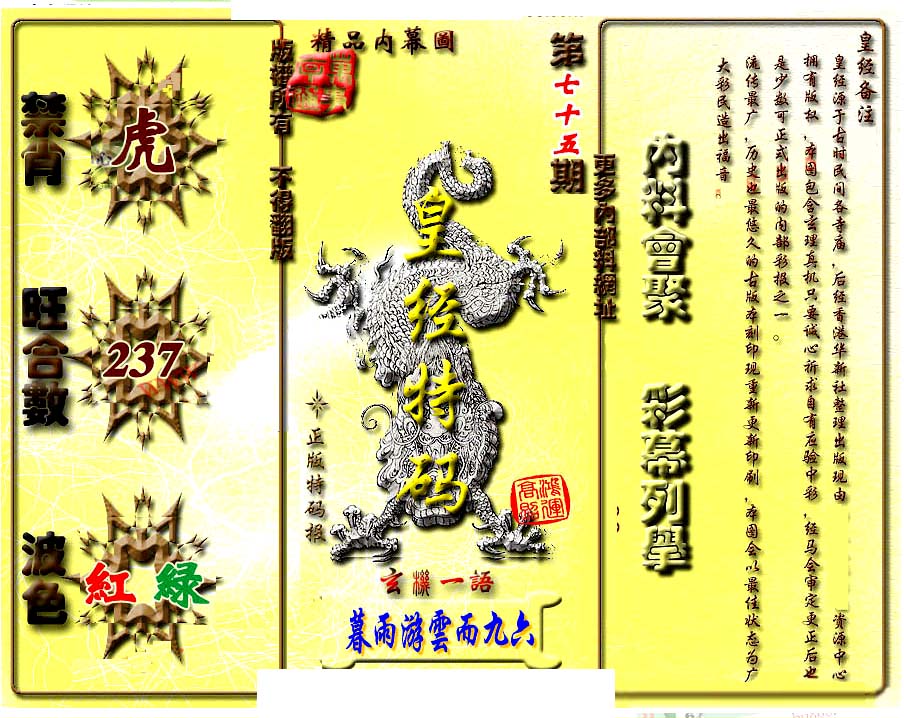 精品内幕圖
第七十五期
禁肖
虎
旺合數
237
波色
紅 綠
版權所有 不得翻版
皇经特码
正版特码报
鴻運高照
玄機一語
暮雨游雲而九六
更多內部料網址
内料會聚 彩幕列舉
皇经备注
皇经源于古时民间各寺庙，后经香港华新社整理出版现由 资源中心
拥有版权，本图包含玄理真机只要诚心祈求自有应验中彩，经马会审定更正后也
是少数可正式出版的内部彩报之一。
流传最广，历史也最悠久的古版本刻印现重新更新印刷，本图会以最佳状态为广
大彩民造出福音